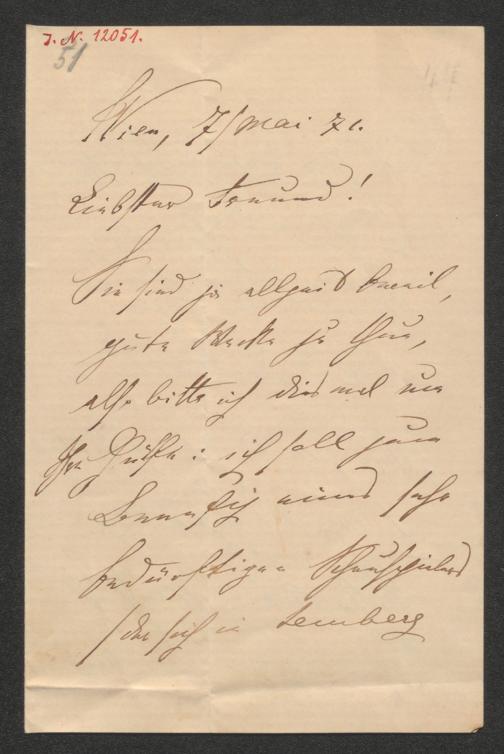 J. N. 12051.
51
Wien, 7/Mai 71.
Liebster Freund!
Sie sind ja allzeit bereit,
gute Werke zu thun,
also bitte ich dies mal um
Ihre Hülfe: ich soll zum
Benefiz eines sehr
bedürftigen Schauspielers
/ der sich in Lemberg